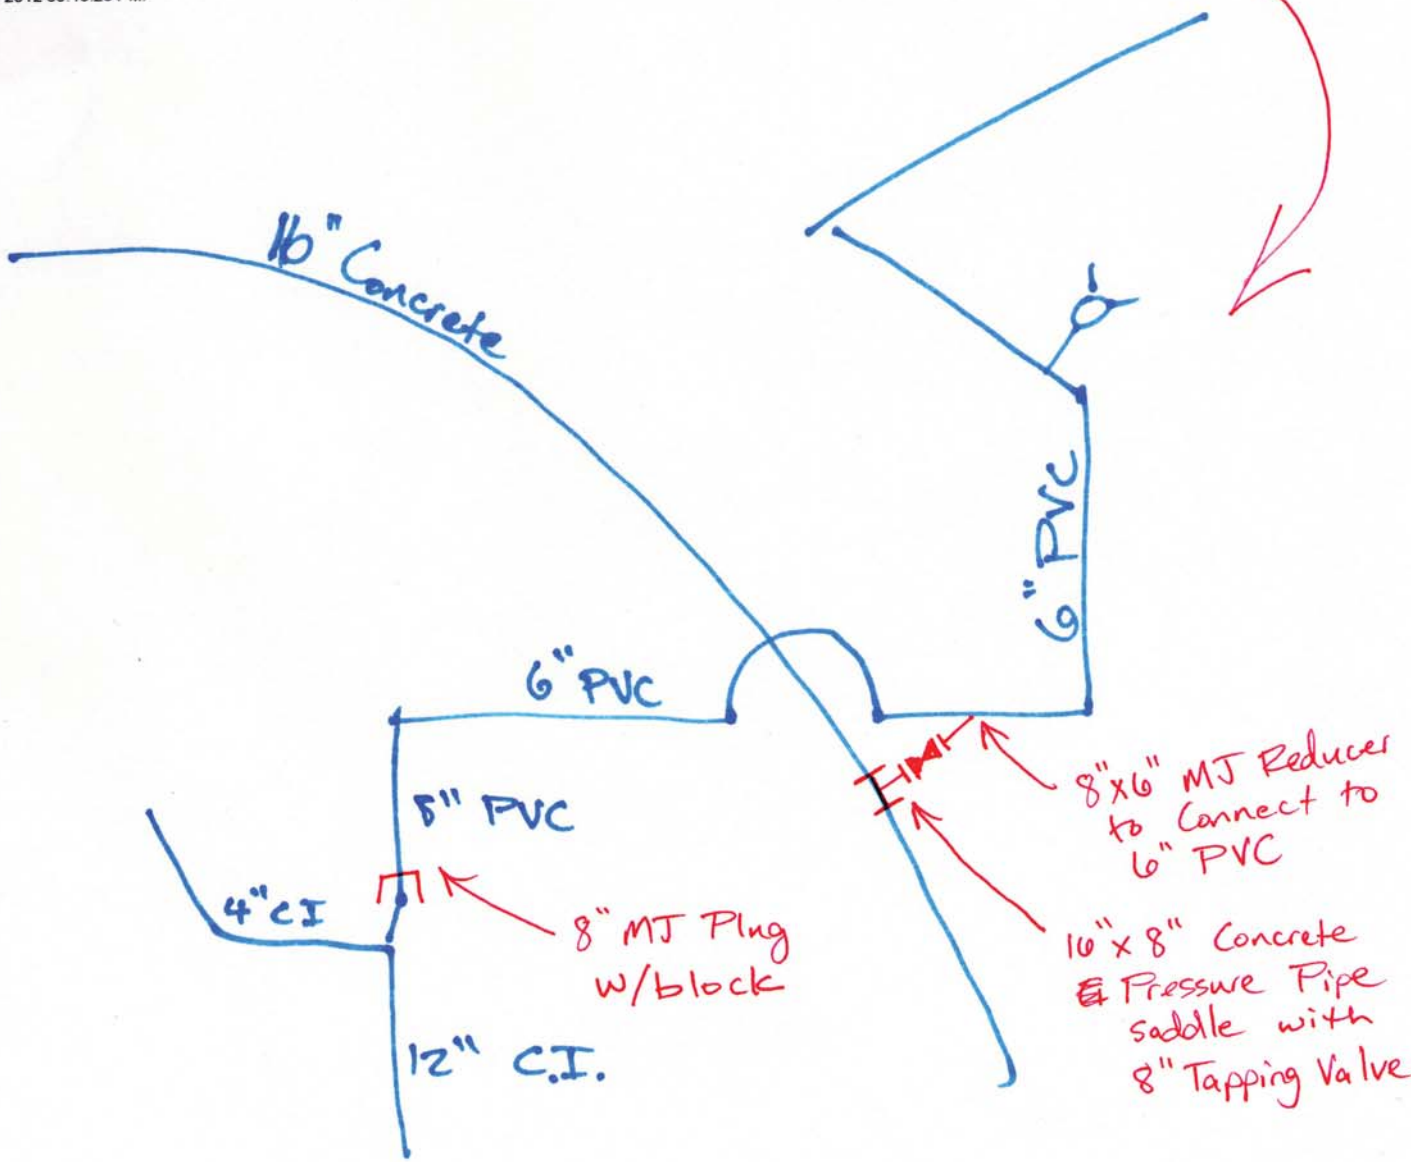 16" Concrete
6" PVC
6" PVC
8" PVC
4" CI
12" C.I.
8" MJ Plug
w/block
8"x6" MJ Reducer
to Connect to
6" PVC
16"x 8" Concrete
Pressure Pipe
saddle with
8" Tapping Valve